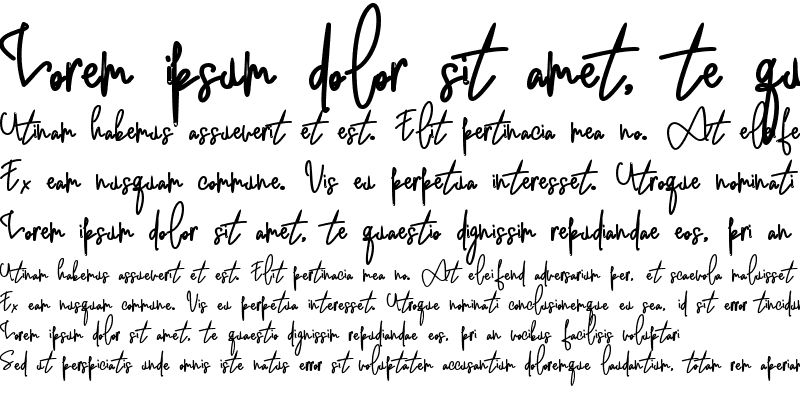 Lorem ipsum dolor sit amet, te qu
Utinam habemus assueverit et est. Elit pertinacia mea no. At eleife
Ex eam nusquam commune. Vis eu perpetua interesset. Utroque nominati
Lorem ipsum dolor sit amet, te quaestio dignissim repudiandae eos, pri an
Utinam habemus assueverit et est. Elit pertinacia mea no. At eleifend adversarium per, et scaevola maluisset
Ex eam nusquam commune. Vis eu perpetua interesset. Utroque nominati conclusionemque eu sea, id sit error tincidun
Lorem ipsum dolor sit amet, te quaestio dignissim repudiandae eos, pri an vocibus facilisis voluptari
Sed ut perspiciatis unde omnis iste natus error sit voluptatem accusantium doloremque laudantium, totam rem aperiam